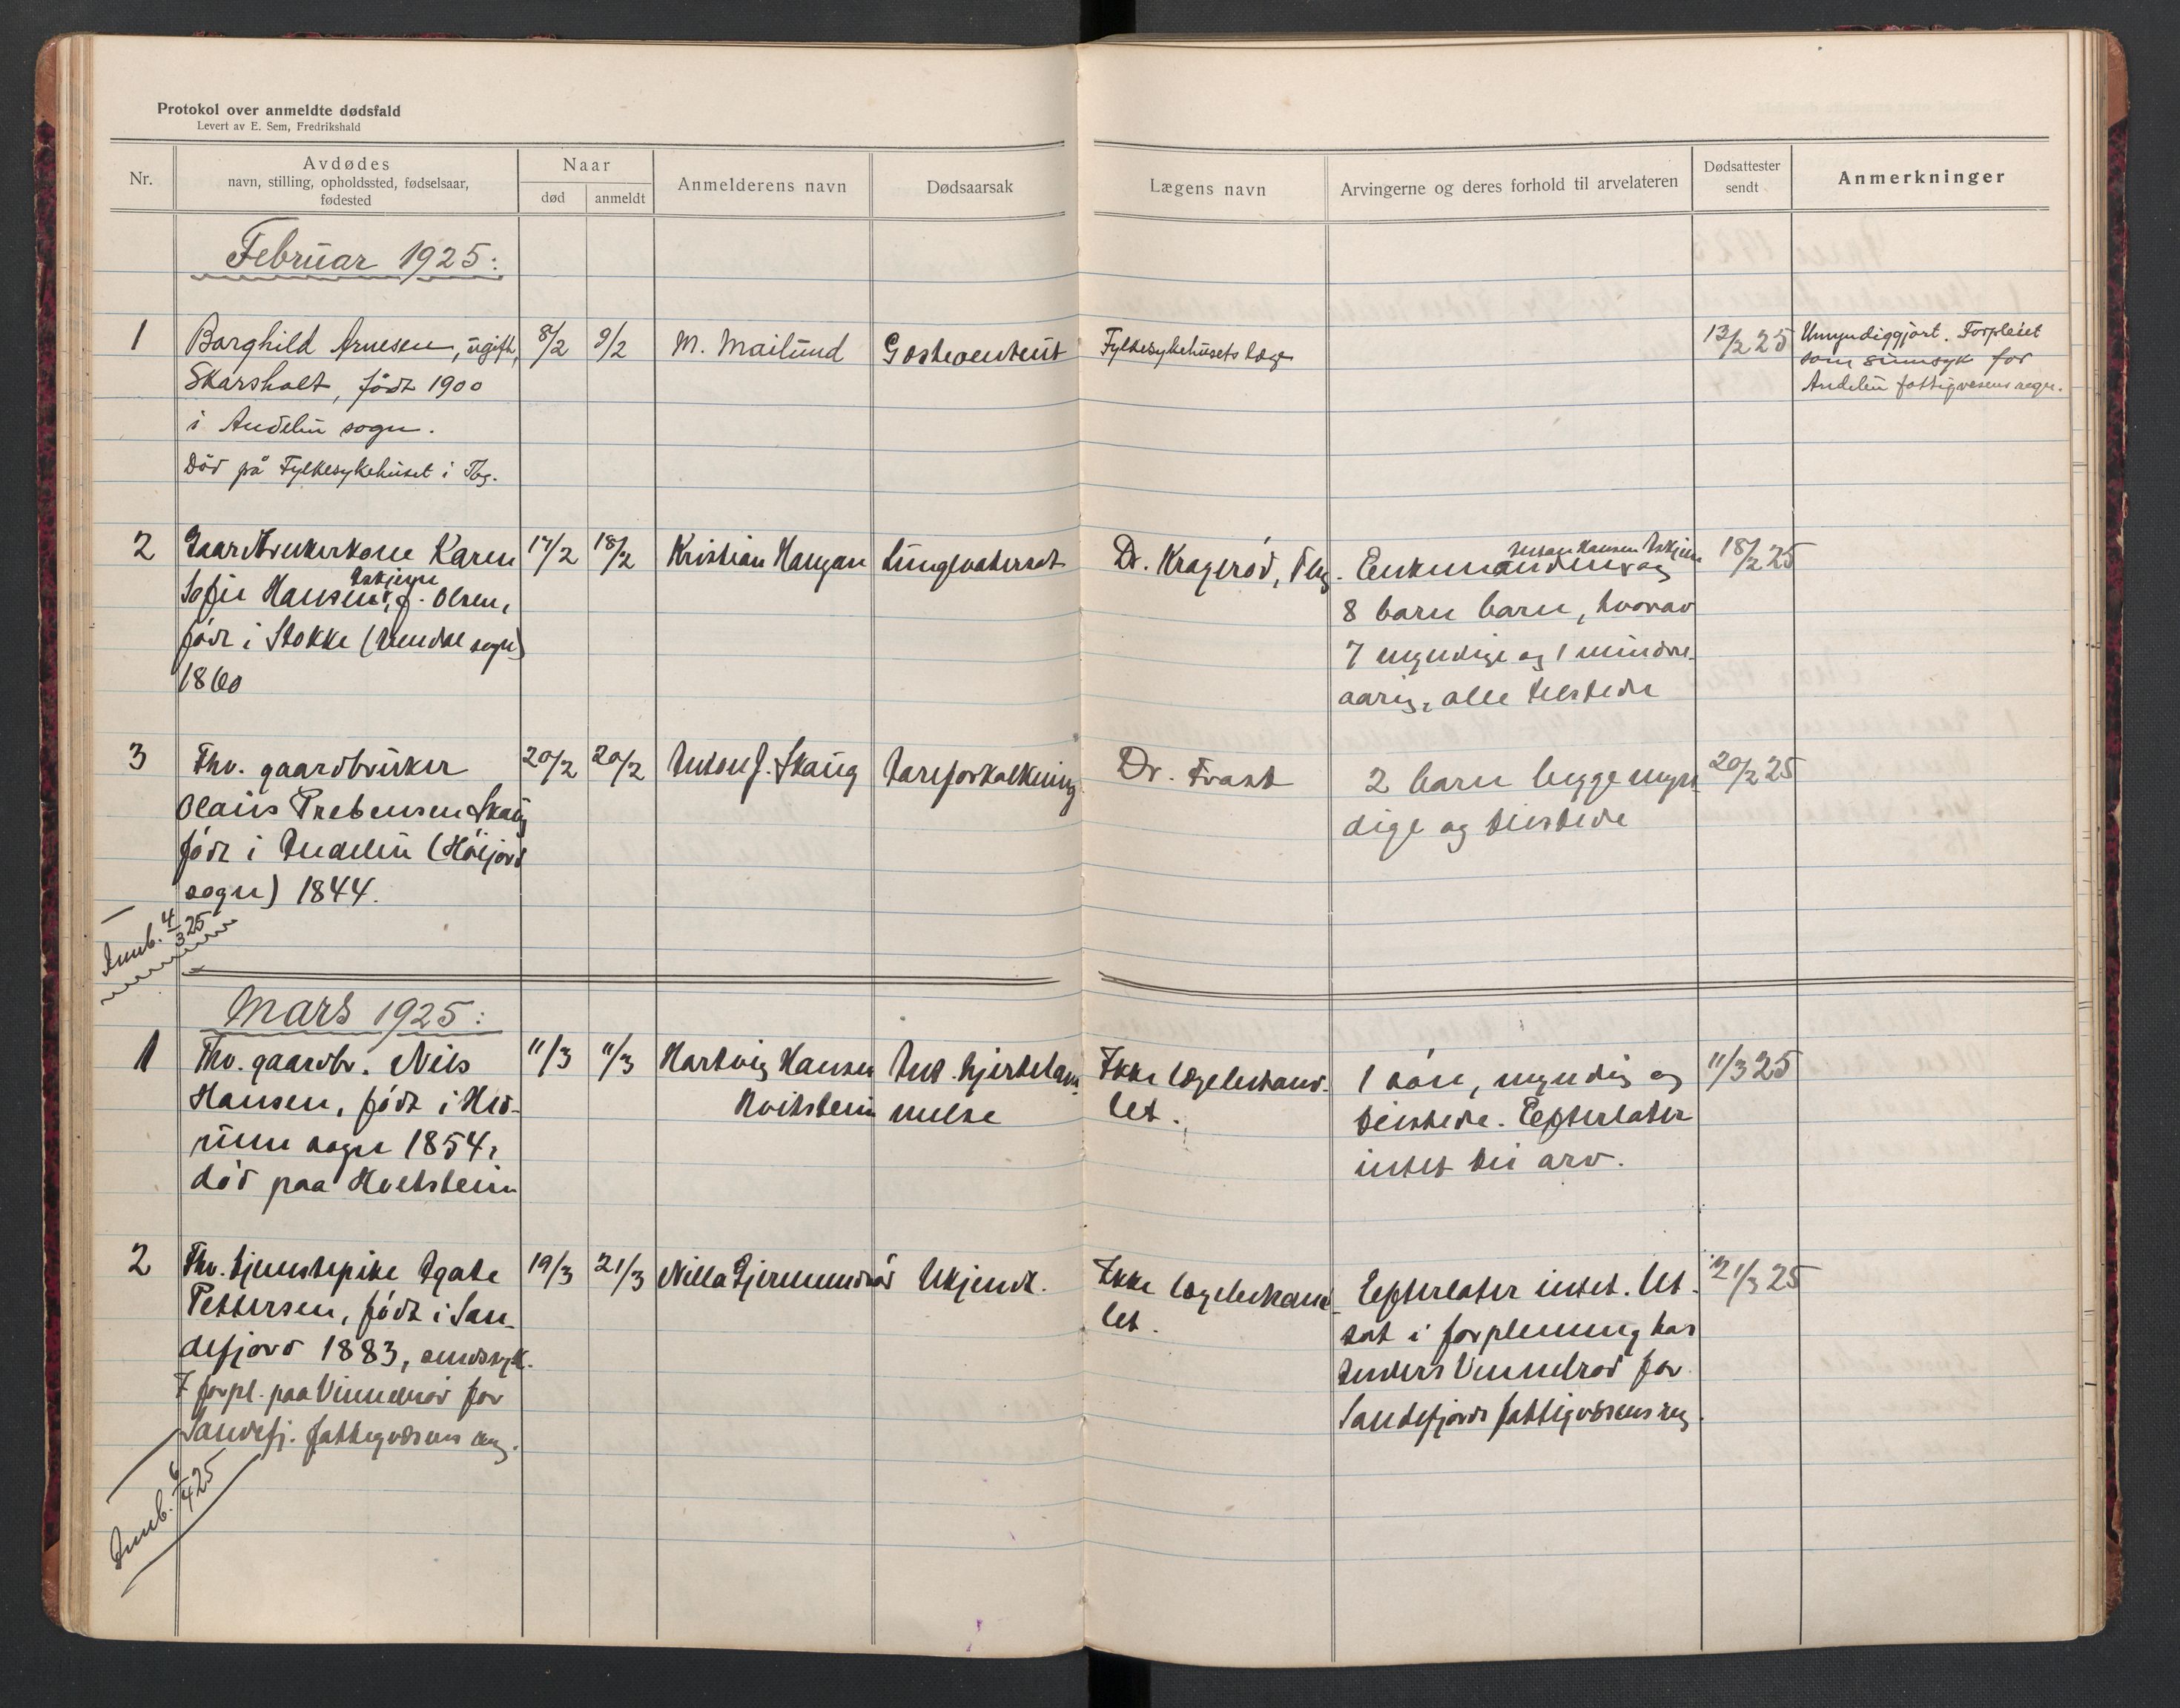 Protokol over anmeldte dødsfald
Levert av E. Sem, Fredrikshald
Nr.
Avdødes
navn, stilling, opholdssted, fødselsaar,
fødested
Naar
død
anmeldt
Anmelderens navn
Dødsaarsak
Lægens navn
Arvingerne og deres forhold til arvelateren
Dødsattester
sendt
Anmerkninger
Februar 1925:
1
Borghild Arnesen, ugift,
Skarsholt, født 1900
i Andebu sogn.
Död på Fylkesykehuset i Tbg.
8/2
9/2
M. Mailund
Fylkesykehusets læge
13/2 25
Umyndiggjort. Forpleiet
som sinnsyk for
Andebu fattigvesens regn.
2
Gaardbrukerkone Karen
Askjem
Sofie Hansen, f. Olsen,
født i Stokke (Arendal sogn)
1860
17/2
18/2
Kristian Haugan
Lungebetændelse
Dr. Kragerød, Tbg.
Johan Hansen Askjem
Enkemanden og
8 barn barn, hvorav
7 myndige og 1 mindre-
aarig, alle tilstede
18/2 25
3
Fhv. gaardbruker
Olaus Prebensen Skaug
født i Andebu (Höijord
sogn) 1844.
20/2
20/2
Anton J. Skaug
Aareforkalkning
Dr. Frant
2 barn begge myn-
dige og tilstede
20/2 25
Innb. 4/3 25
Mars 1925:
1
Fhv. gaardbr. Nils
Hansen, født i Hed-
rum sogn 1854,
död paa Hvitstein
11/3
11/3
Hartvig Hansen
Hvitstein
Ant. hjertelam-
melse
Ikke lægebehand-
let.
1 sön, myndig og
tilstede. Efterlater
intet til arv.
11/3 25
2
Fhv. tjenestepike Agate
Pettersen, født i San-
defjord 1883, sindssyk.
I forpl. paa Vinnelröd for
Sandefj. fattigvæsens regn.
19/3
21/3
Nilla Gjermundröd
Ukjendt.
Ikke lægebehand-
let.
Efterlater intet. Ut-
sat i forpleining hos
Anders Vinnelröd for
Sandefjords fattigvæsens regn.
21/3 25
Innb. 6/4 25